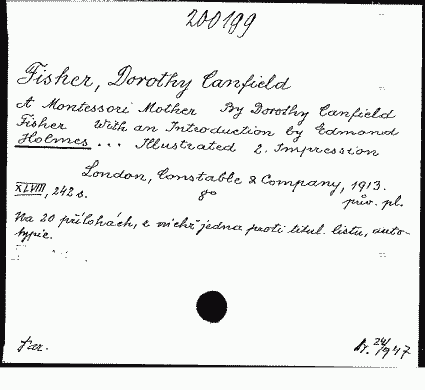 200199
Fisher, Dorothy Canfield
A Montessori Mother By Dorothy Canfield
Fisher With an Introduction by Edmond
Holmes ... Illustrated 2. Impression
London, Constable & Company, 1913.
XLVIII, 242 s. 8o pův. pl.
Na 20 přílohách, z nichž jedna proti titul. listu, auto-
typie.
24/
1947